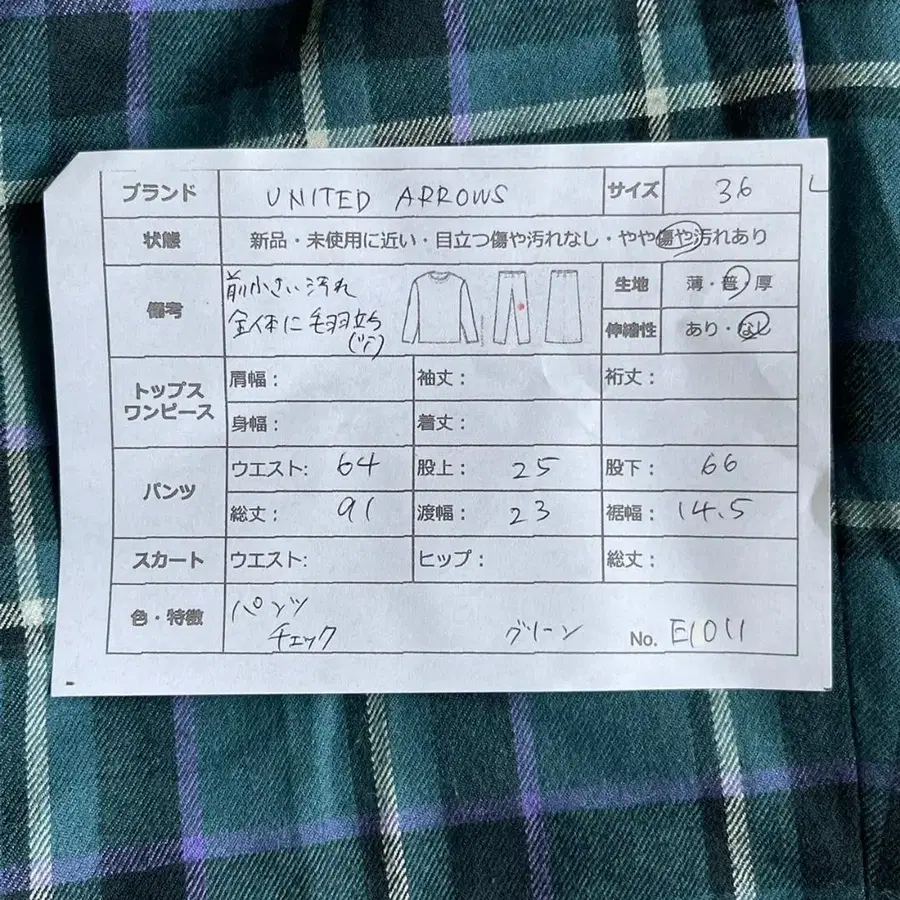 ブランド UNITED ARROWS サイズ 36
状態 新品・未使用に近い・目立つ傷や汚れなし・やや傷や汚れあり
備考 前小さい汚れ 生地 薄・普・厚
全体に毛羽立ち 伸縮性 あり・なし
トップス
ワンピース
肩幅: 袖丈: 裄丈:
身幅: 着丈:
パンツ ウエスト: 64 股上: 25 股下: 66
総丈: 91 渡幅: 23 裾幅: 14.5
スカート ウエスト: ヒップ: 総丈:
色・特徴 パンツ
チェック グリーン No. E1011